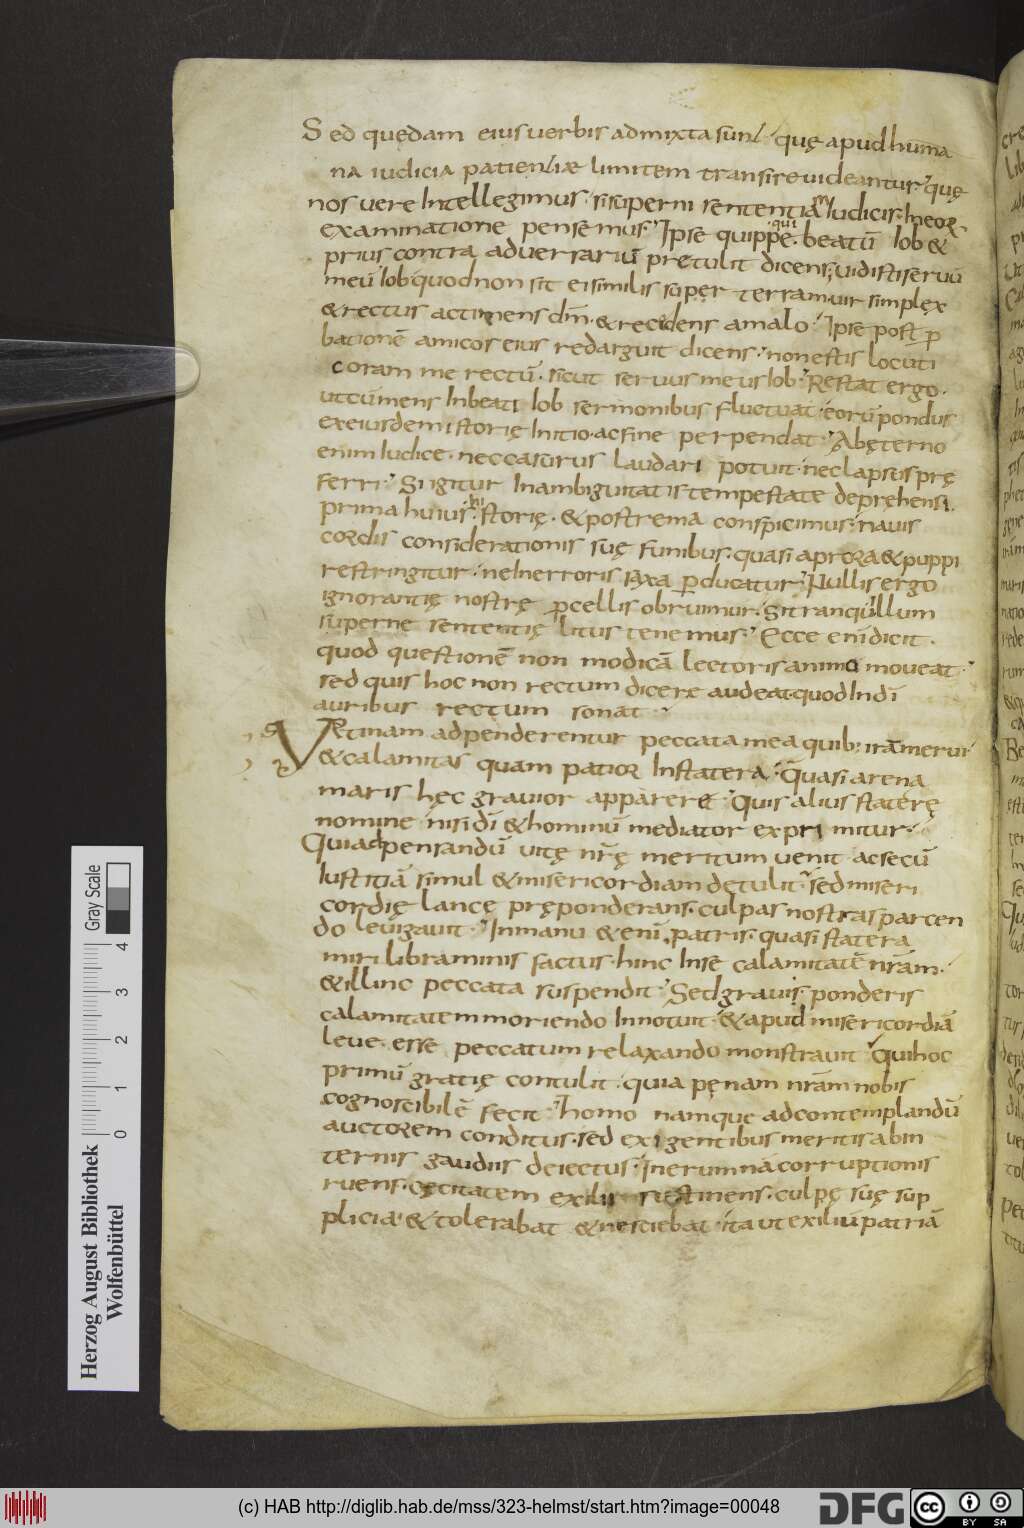 Sed quędam eius uerbis admixta sunt quę apud huma
na iudicia patientiae limitem transire uideantur quę
nos uere Intellegimus si superni sententiam Iudicis Ineor
examinatione pensemus Ipse quippe qui beatū Iob &
prius contra aduersariū pretulit dicens uidisti seruū
meū Iob quod non sit ei similis super terram uir simplex
& rectus ac timens dm̄ & recedens amalo Ipse post p
bationē amicos eius redarguit dicens non estis locuti
coram me rectū sicut seruus meus Iob Restat ergo
ut cū mens Inbeati Iob sermonibus fluctuat eorū pondus
ex eiusdem istorię Initio ac fine perpendat Abęterno
enim Iudice nec casurus laudari potuit nec lapsus prę
ferri Si igitur Inambiguitatis tempestate deprehensi
prima huius histories & postrema conspicimus nauis
cordis considerationis suę funibus quasi aprora & puppi
restringitur ne Inerroris saxa p ducatur Nullis ergo
ignorantię nostrę pcellis obruimur si tranquillum
superne sententię litus tenemus Ecce eni dicit
quod questionē non modicā lectoris animo moueat
sed quis hoc non rectum dicere audeat quod Indi
auribus rectum sonat
Vtinam adpenderentur peccata mea quib: irā merui
& calamitas quam patior Instatera Quasi arena
maris hęc grauior appareret Quis alius staterę
nomine nisi di & hominū mediator exprimitur
Qui ad pensandū uitę nrę meritum uenit ac secū
Iustitiā simul & misericordiam detulit sed miseri
cordię lance pręponderans culpas nostras parcen
do leuigauit Inmanu & eni patris quasi statera
miri libraminis factus hinc Inse calamitatē nrām
& illinc peccata suspendit Sed grauis ponderis
calamitatem moriendo Innotuit & apud misericordiā
leue esse peccatum relaxando monstrauit Qui hoc
primū gratię contulit quia pęnam nrām nobis
cognoscibilē fecit homo namque adcontemplandū
auctorem conditus sed exigentibus meritis abin
ternis gaudiis deiectus Inerumna corruptionis
ruens cęcitatem exilii sustinens culpę suę sup
plicia & tolerabat & nesciebat ita ut exiliū patriā
Herzog August Bibliothek
Wolfenbüttel
Gray Scale
0 1 2 3 4
(c) HAB http://diglib.hab.de/mss/323-helmst/start.htm?image=00048
DFG
cc BY SA